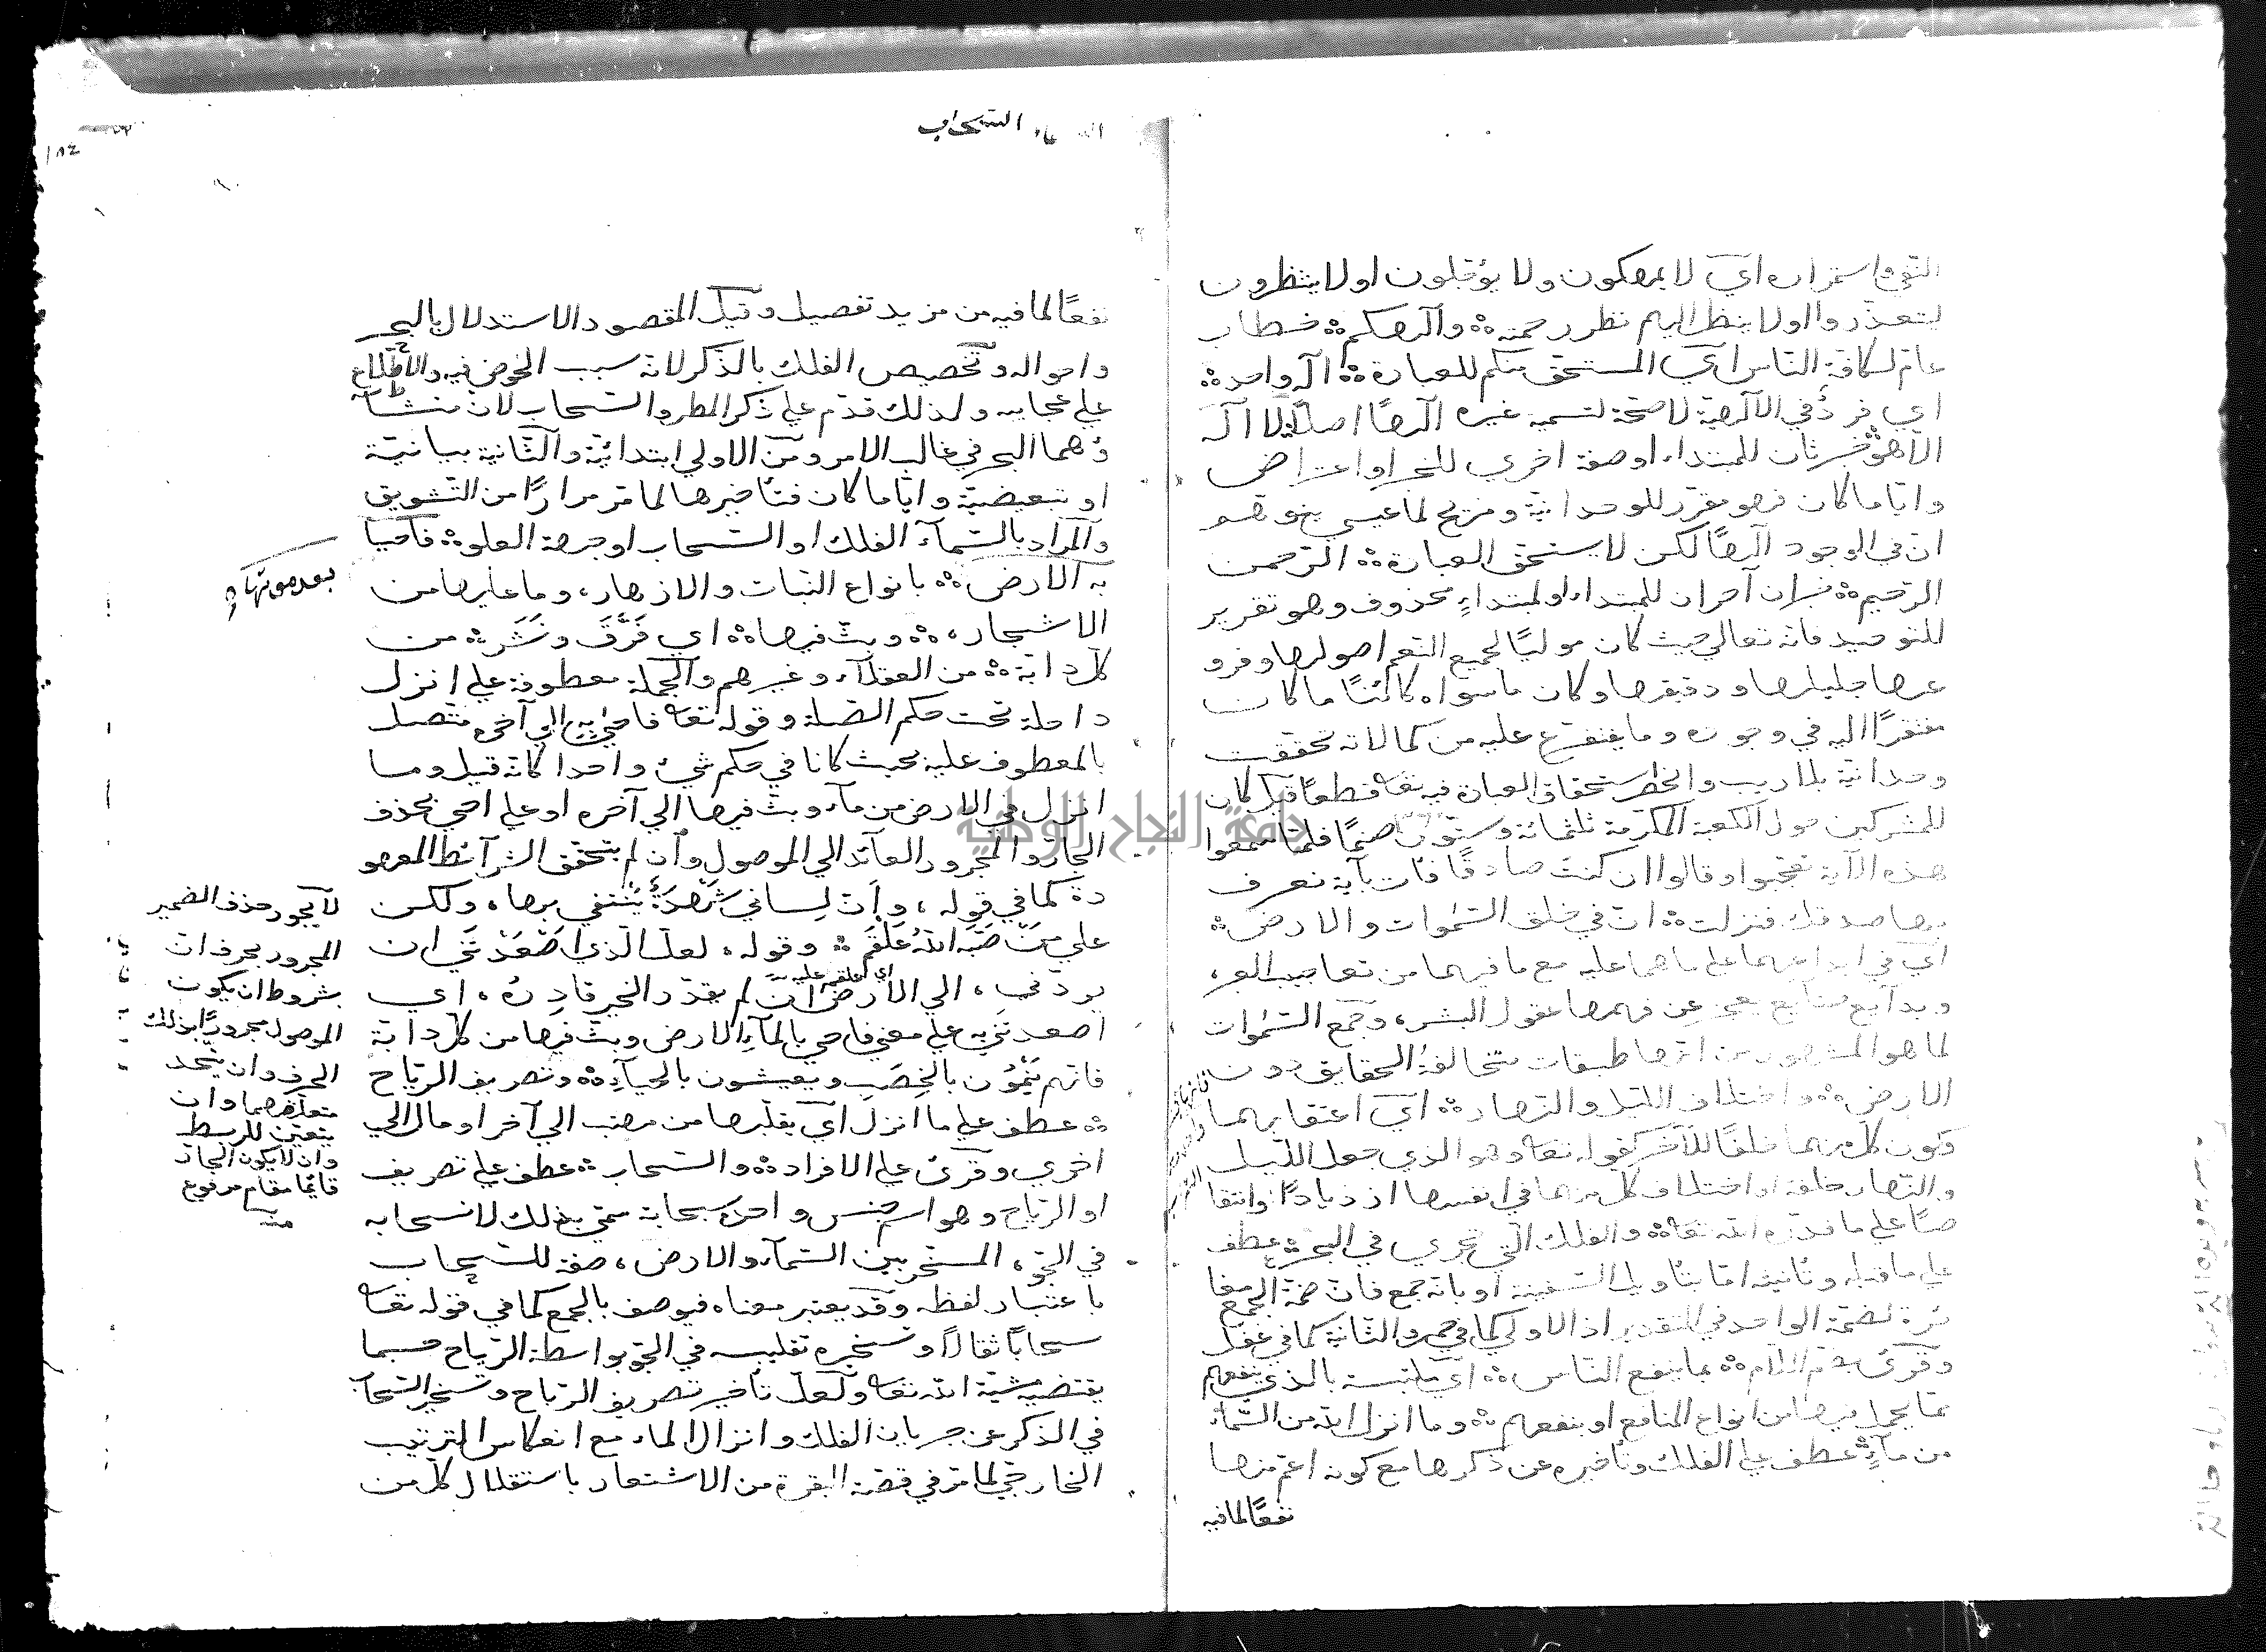 النفي واستمراره اي لا يمهلون ولا يؤجلون او لا ينظرون
ليعتذروا او لا ينظر اليهم نظر رحمة ۞ والهكم ۞ خطاب
عام لكافة الناس اي المستحق منكم للعبادة ۞ اله واحد ۞
اي فردٌ في الالهية لا صحة لتسمية غيره الهًا اصلا ۞ لا اله
الا هو ۞ خبر ثان للمبتداء او صفة اخري للخبر او اعتراض
وايّا ما كان فهو مقرر للوحدانية ومزيح لما عسى يتوهم
ان في الوجود الهًا لكن لا يستحق العبادة ۞ الرحمن
الرحيم ۞ خبران آخران للمبتداء او لمبتداءٍ محذوف وهو تقرير
للتوحيد فانه تعالي حيث كان موليًا لجميع النعم اصولها وفرو
عها جليلها ودقيقها وكان ما سواه كائنًا ما كان
مفتقرًا اليه في وجوده وما يتفرع عليه من كمالاته تحققت
وحدانيته بلا ريب وانحصر استحقاق العبادة فيه تعا قطعًا قيل كان
للمشركين حول الكعبة المكرمة ثلثمائة وستون صنمًا فلما سمعوا
هذه الآية تعجبوا وقالوا ان كنت صادقًا فات بآية نعرف
بها صدقك فنزلت ۞ ان في خلق السموات والارض ۞
اي في ابداعهما على ما هما عليه مع ما فيهما من تعاجيب العبر،
وبدايع صنايع يعجز عن فهمها عقول البشر، وجمع السموات
لما هو المشهور من انها طبقات متخالفة الحقايق دون
الارض ۞ واختلاف الليل والنهار ۞ اي اعتقابهما
وكون كل منهما خلفًا للآخر كقوله تعا وهو الذي جعل الليل
والنهار خلفة او اختلاف كل منهما في انفسها ازديادًا وانتقا
صًا على ما قدره الله تعا ۞ والفلك التي تجري في البحر ۞ عطف
علي ما قبله وتأنيثه اما بتأويل السفينة او بانه جمع فان ضمة الجمع مغا
ئرة لضمة الواحد في التقدير اذ الاولي كما في حمر والثانية كما في قفل
وقرئ بضم اللام ۞ بما ينفع الناس ۞ اي متلبسة بالذي ينفعهم
مما يحمل فيها من انواع المنافع او بنفعهم ۞ وما انزل الله من السماء
من ماءٍ ۞ عطف علي الفلك وتأخيره عن ذكرها مع كونه اعم منها
نفعًا لما فيه
السحاب
١٨٤
نفعًا لما فيه من مزيد تفصيل وقيل المقصود الاستدلال بالبحر
واحواله وتخصيص الفلك بالذكر لانه سبب الخوض فيه والاطلاع
علي عجايبه ولذلك قدم علي ذكر المطر والسحاب لان منشأ
ؤهما البحر في غالب الامر ومن الاولي ابتدائية والثانية بيانية
او تبعيضية وايّا ما كان فتأخيرها لما مر مرارًا من التشويق
والمراد بالسماء الفلك او السحاب او جهة العلو ۞ فاحيا
به الارض ۞ بانواع النبات والازهار، وما عليها من
الاشجار، ۞ وبث فيها ۞ اي فَرَّقَ ونَشَرَ ۞ من
كل دابة ۞ من العقلاء وغيرهم والجملة معطوفة علي انزل
داخلة تحت حكم الصلة وقوله تعا فاحيا به الي آخره متصل
بالمعطوف عليه بحيث كانا في حكم شيء واحد كانه قيل وما
انزل في الارض من ماء وبث فيها الي آخره او علي احيي بحذف
الجار والمجرور العائد الي الموصول وان لم يتحقق الشرائط المعهو
دة كما في قوله، وإن لساني شهدة يشتفي بها، ولكن
علي من صبّه الله علقم ۞ وقوله، لعل الذي اصعدتني ان
يردني، الي الارض ان لم يقدر الخير قادره، اي
اي علقم عليه
اصعدتني به علي معني فاحيي بالماء الارض وبث فيها من كل دابة
فانهم ينمون بالخصب ويعيشون بالحياء ۞ وتصريف الرياح
۞ عطف علي ما انزل اي يقلبها من مهب الي آخر او حال الي
اخري وقرئ علي الافراد ۞ والسحاب ۞ عطف علي تصريف
او الرياح وهو اسم جنس واحده سحابة سمي بذلك لانسحابه
في الجو، المسخر بين السماء والارض، صفة للسحاب
باعتبار لفظه وقد يعتبر معناه فيوصف بالجمع كما في قوله تعا
سحابًا ثقالاً وتسخيره تقليبه في الجو بواسطة الرياح حسبما
يقتضيه مشية الله تعا ولعل تأخير تصريف الرياح وتسخير السحا
في الذكر عن جريان الفلك وانزال الماء مع انعكاس الترتيب
الخارجي لما مر في قصة البقرة من الاشعار باستقلال كل من
بعد موتها
لا يجوز حذف الضمير
المجرور بحرف ان
بشروط ان يكون
الموصول مجرورًا بذلك
الحرف وان يتحد
متعلقهما وان
يتعين للربط
وان لا يكون الجار
قائما مقام مرفوع
منه
جامعة النجاح الوطنية